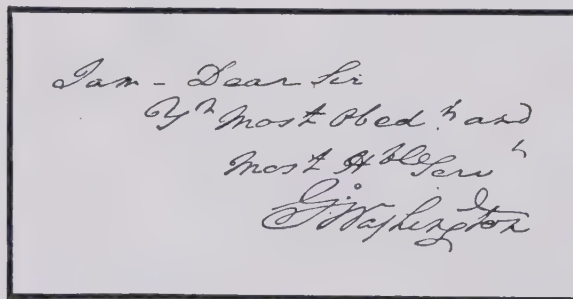 I am - Dear Sir
Yr Most Obed.t and
Most Hble Serv t
Go Washington